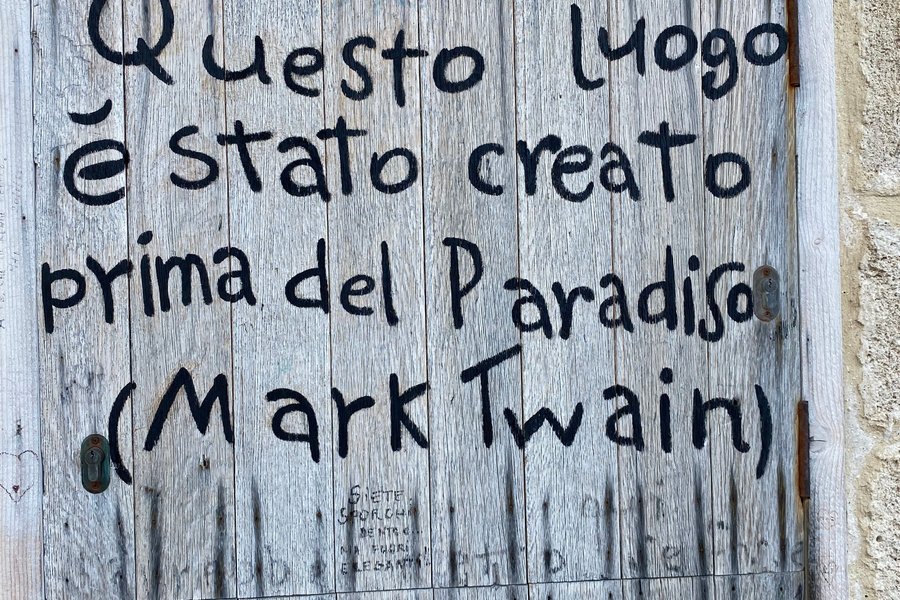 Questo luogo
è stato creato
prima del Paradiso
(Mark Twain)
SIETE
SPORCHI
DENTRO
MA FUORI
ELEGANTI!